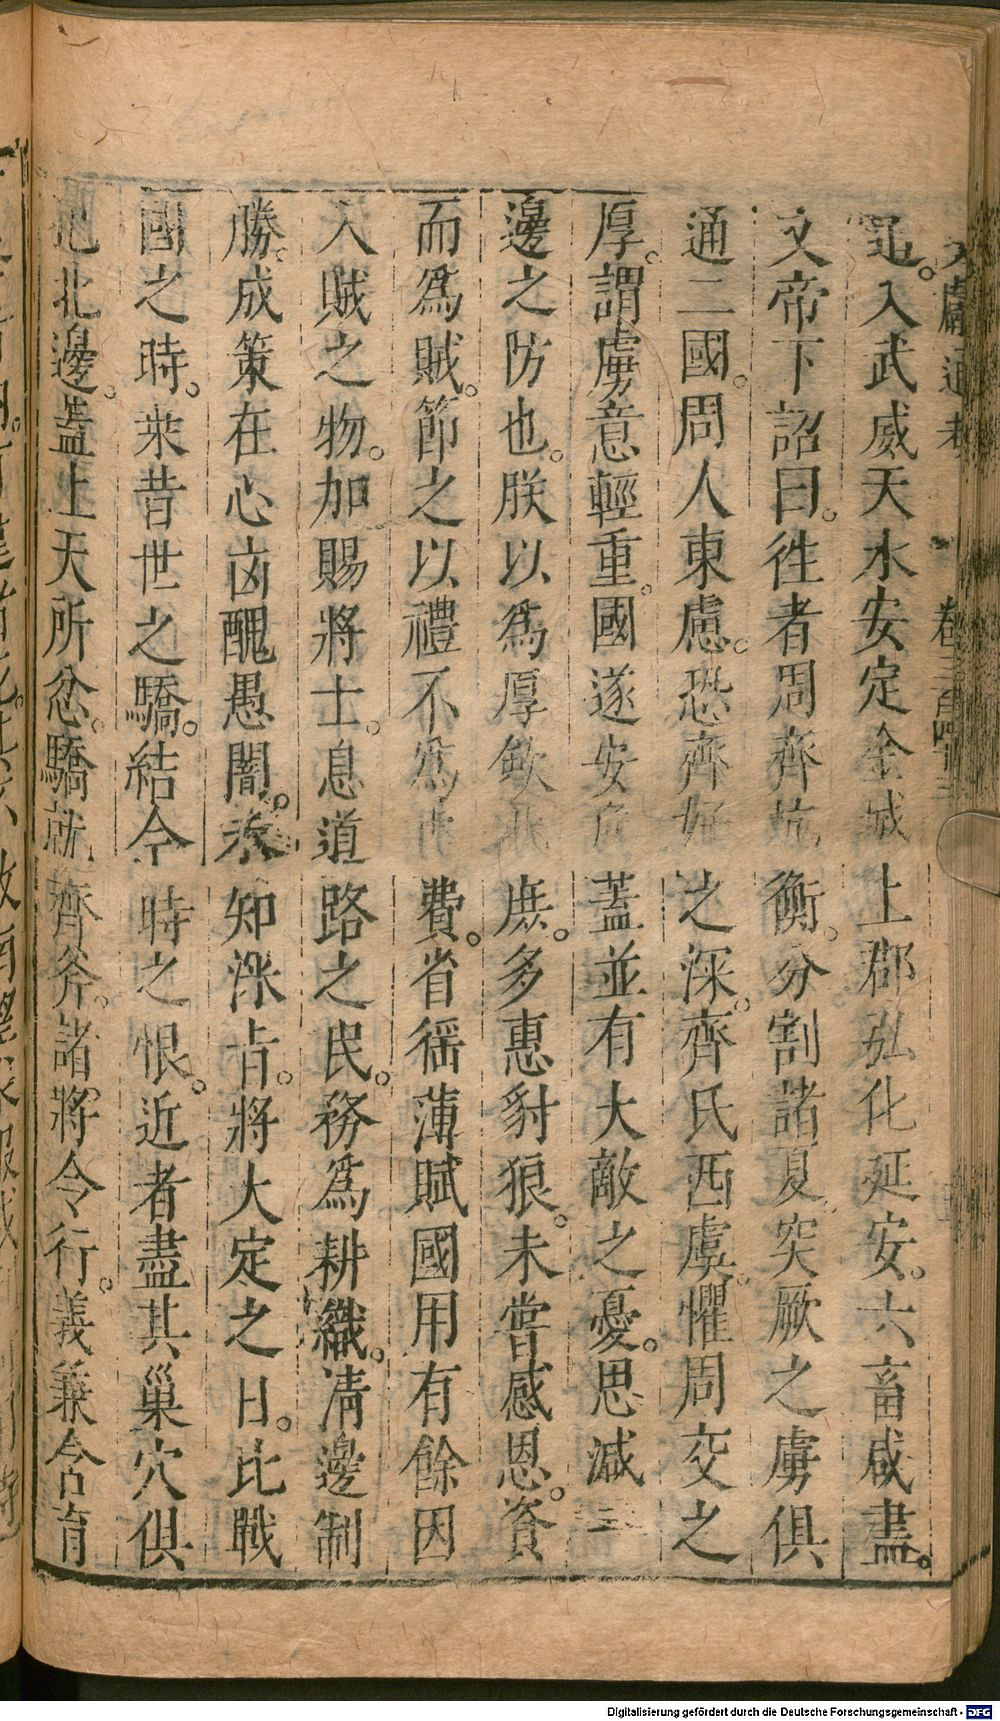 黽入武威天水安定金城上郡弘化延安六畜咸盡
文帝下詔曰往者周齊抗衡分割諸夏突厥之虜俱
通二國周人東慮恐齊好之深齊氏西虞懼周交之
厚謂虜意輕重國遂安危蓋並有大敵之憂思減一
邊之防也朕以為厚斂兆庶多惠豺狼未嘗感恩資
而為賊節之以禮不為虛費省徭薄賦國用有餘因
入賊之物加賜將士息道路之民務為耕織清邊制
勝成策在心凶醜愚闇未知深旨將大定之日比戰
國之時乘昔世之驕結今時之恨近者盡其巢穴俱
犯北邊蓋上天所忿驅就齊斧諸將今行義兼含育
文獻通考 卷三百四十三
Digitalisierung gefördert durch die Deutsche Forschungsgemeinschaft - DFG